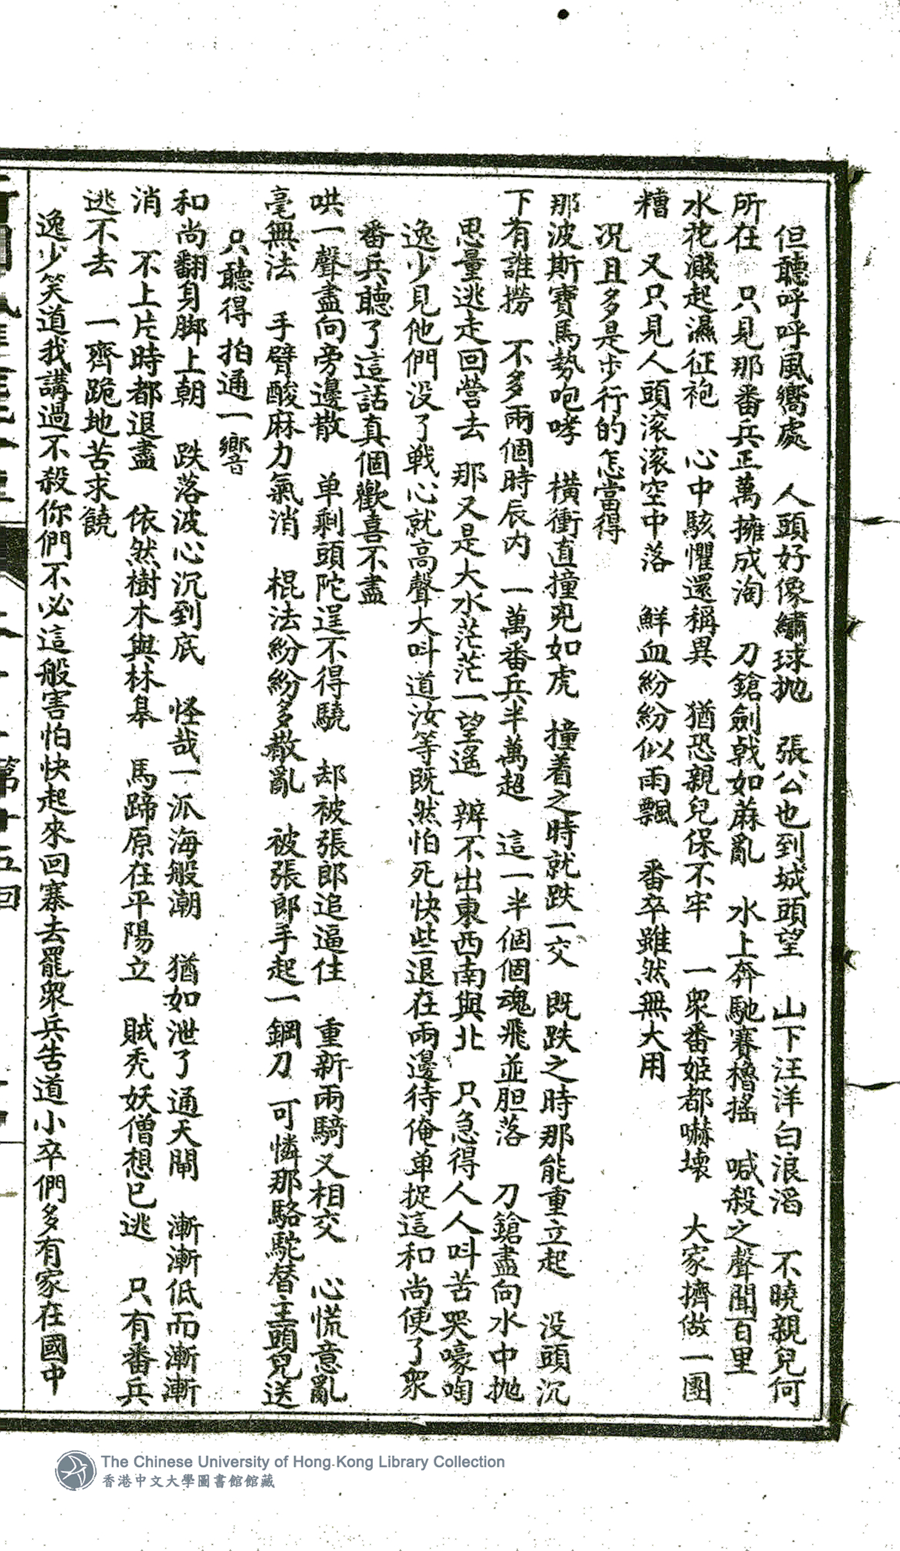 但聽呼呼風嚮處　人頭好像繡球抛　張公也到城頭望　山下汪洋白浪滔　不曉親兒何
所在　只見那番兵正萬擁成洶　刀鎗劍戟如蔴亂　水上奔馳賽櫓搖　喊殺之聲聞百里
水花濺起濕征袍　心中駭懼還稱異　猶恐親兒保不牢　一衆番姬都嚇壞　大家擠做一團
糟　又只見人頭滚滚空中落　鮮血紛紛似雨飄　番卒雖然無大用
况且多是步行的怎當得
那波斯寶馬勢咆哮　橫衝直撞兇如虎　撞着之時就跌一交　既跌之時那能重立起　没頭沉
下有誰撈　不多兩個時辰内　一萬番兵半萬超　這一半個個魂飛並胆落　刀鎗盡向水中抛
思量逃走回營去　那又是大水茫茫一望遥　辨不出東西南與北　只急得人人呌苦哭嚎啕
逸少見他們没了戰心就高聲大呌道汝等既然怕死快些退在兩邊待俺单捉這和尚便了衆
番兵聽了這話真個歡喜不盡
哄一聲盡向旁邊散　单剩頭陀逞不得驍　却被張郎追逼住　重新兩騎又相交　心慌意亂
毫無法　手臂酸麻力氣消　棍法紛紛多散亂　被張郎手起一鋼刀　可憐那駱駝替主頭兒送
只聽得拍通一嚮
和尚翻身脚上朝　跌落波心沉到底　怪哉一派海般潮　猶如泄了通天閘　漸漸低而漸漸
消　不上片時都退盡　依然樹木與林皋　馬蹄原在平陽立　賊秃妖僧想已逃　只有番兵
逃不去　一齊跪地苦求饒
逸少笑道我講過不殺你們不必這般害怕快起來回寨去罷衆兵告道小卒們多有家在國中
第十五回
The Chinese University of Hong Kong Library Collection
香港中文大學圖書館館藏